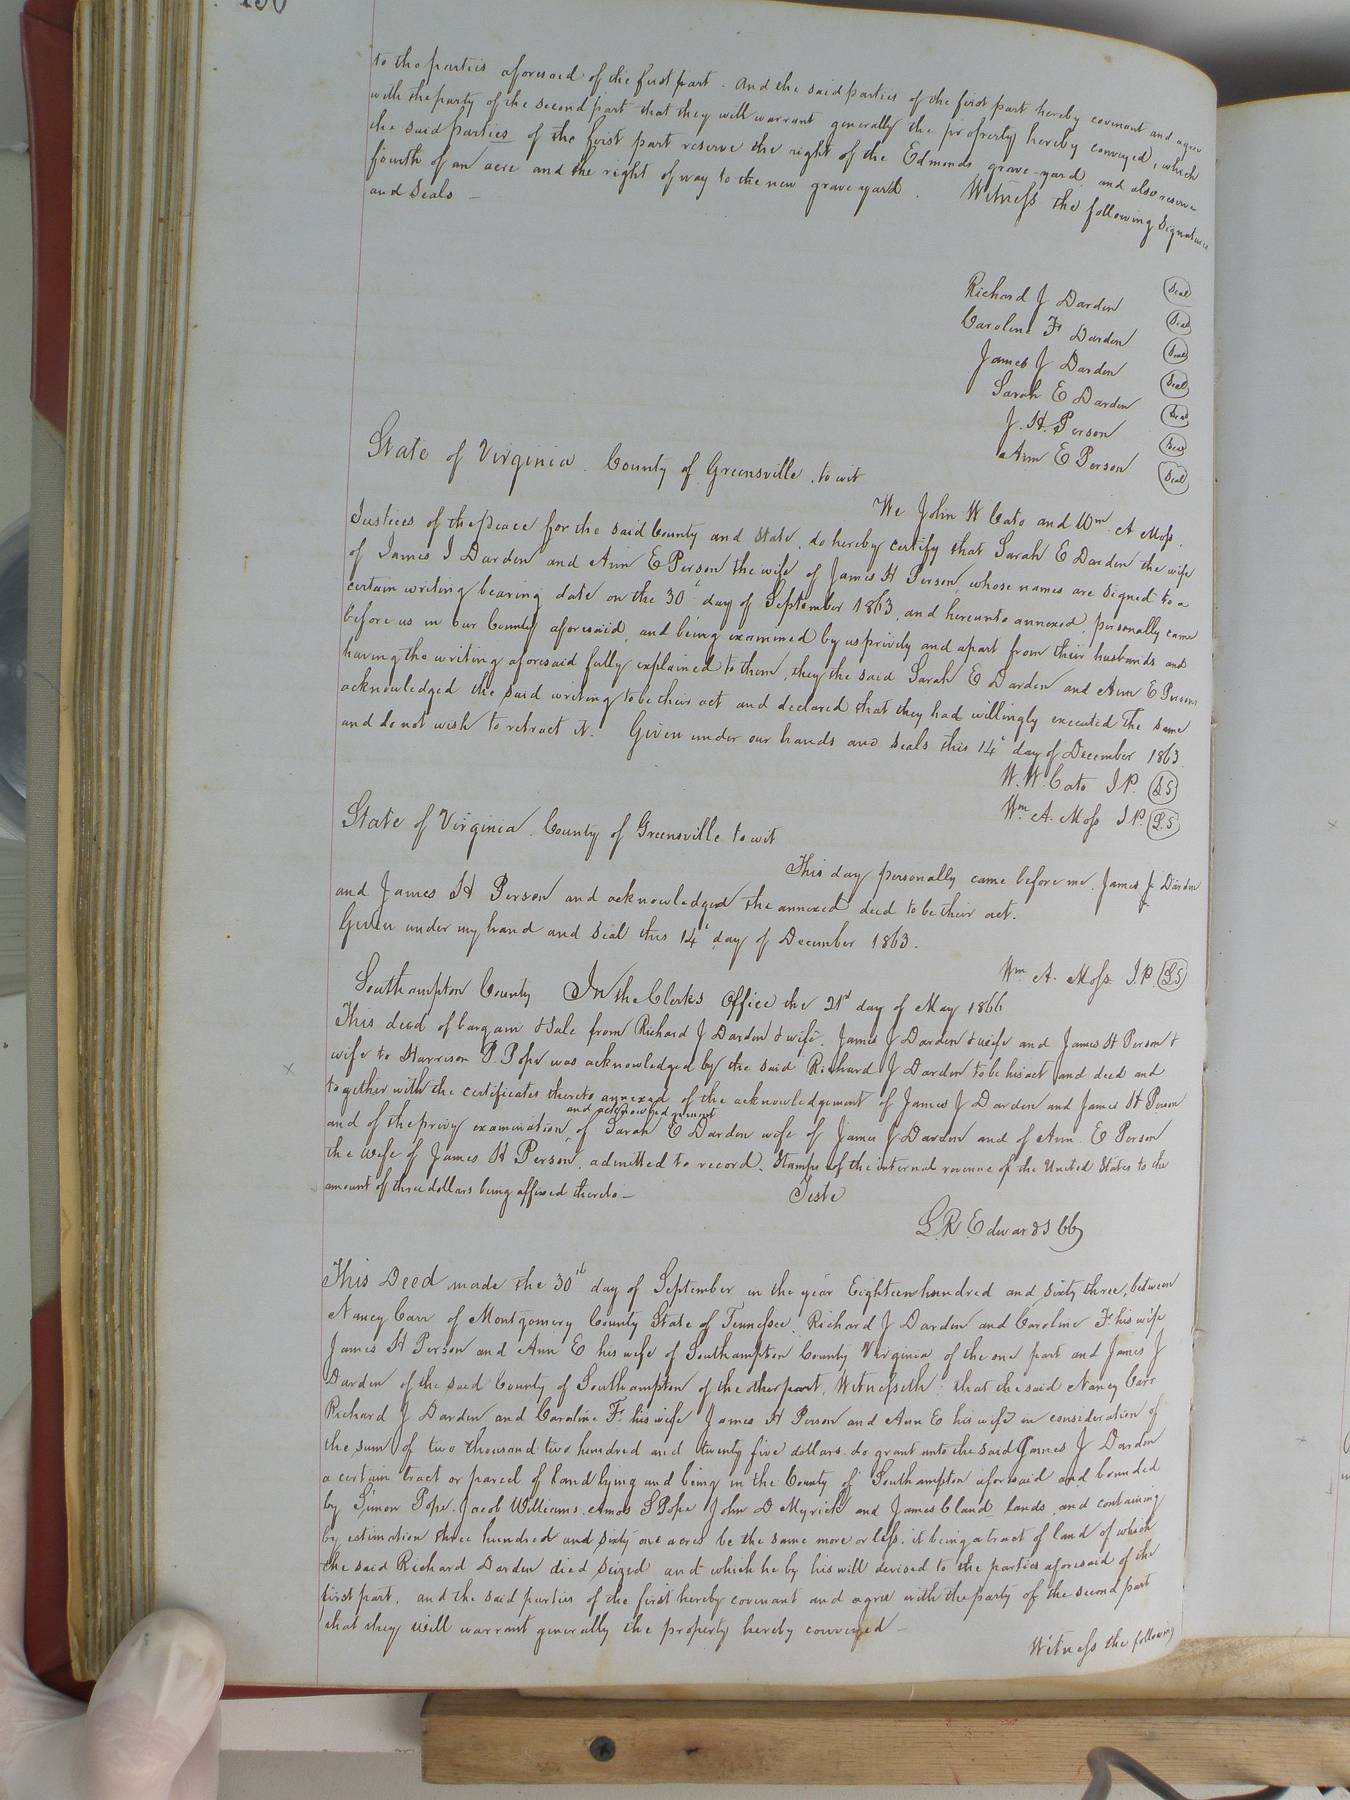 to the parties aforesaid of the first part. And the said parties of the first part hereby covenant and agree
with the party of the second part that they will warrant generally the property hereby conveyed, which
the said parties of the first part reserve the right of the Edmonds grave-yard and also reserve
fourth of an acre and the right of way to the new grave yard. Witness the following signatures
and seals —
Richard J Darden Seal
Caroline F. Darden Seal
James J Darden Seal
Sarah E Darden Seal
J. H. Person Seal
Ann E Person Seal
Seal
State of Virginia. County of Greensville, to wit
We John W Cato and Wm. A Moss.
Justices of the peace for the said County and State, do hereby certify that Sarah E Darden the wife
of James J Darden and Ann E Person the wife of James H Person, whose names are signed to a
certain writing bearing date on the 30th day of September 1863, and hereunto annexed, personally came
before us in our County aforesaid, and being examined by us privily and apart from their husbands and
having the writing aforesaid fully explained to them, they the said Sarah E Darden and Ann E Person
acknowledged the said writing to be their act and declared that they had willingly executed the same
and do not wish to retract it. Given under our hands and seals this 14th day of December 1863.
W. W. Cato J.P. L.S
Wm A. Moss J.P. L.S
State of Virginia. County of Greensville to wit
This day personally came before me, James J. Darden
and James H Person and acknowledged the annexed deed to be their act.
Given under my hand and seal this 14th day of December 1863.
Wm A. Moss J.P. L.S
Southampton County In the Clerks Office the 21st day of May 1866
This deed of bargain & Sale from Richard J Darden & wife, James J Darden & wife and James H Person &
wife to Harrison P. Pope was acknowledged by the said Richard J Darden to be his act and deed and
together with the certificates thereto annexed of the acknowledgement of James J Darden and James H Person
and acknowledgement
and of the privy examination of Sarah E Darden wife of James J Darden and of Ann E Person
the wife of James H Person, admitted to record. Stamps of the internal revenue of the United States to the
amount of three dollars being affixed thereto —
Teste
L. R. Edwards CC
This Deed made the 30th day of September in the year Eighteen hundred and sixty three, between
Nancy Carr of Montgomery County State of Tennessee, Richard J Darden and Caroline F. his wife
James H Person and Ann E his wife of Southampton County Virginia of the one part and James J
Darden of the said County of Southampton of the other part, Witnesseth: that the said Nancy Carr
Richard J Darden and Caroline F. his wife James H Person and Ann E his wife in consideration of
the sum of two thousand two hundred and twenty five dollars do grant unto the said James J Darden
a certain tract or parcel of land lying and being in the County of Southampton aforesaid and bounded
by Simon Pope. Jacob Williams. Amos S Pope John D Myrick and James Bland lands and containing
by estimation three hundred and sixty one acres be the same more or less, it being a tract of land of which
the said Richard Darden died seized and which he by his will devised to the parties aforesaid of the
first part, and the said parties of the first hereby covenant and agree with the party of the second part
that they will warrant generally the property hereby conveyed —
Witness the following